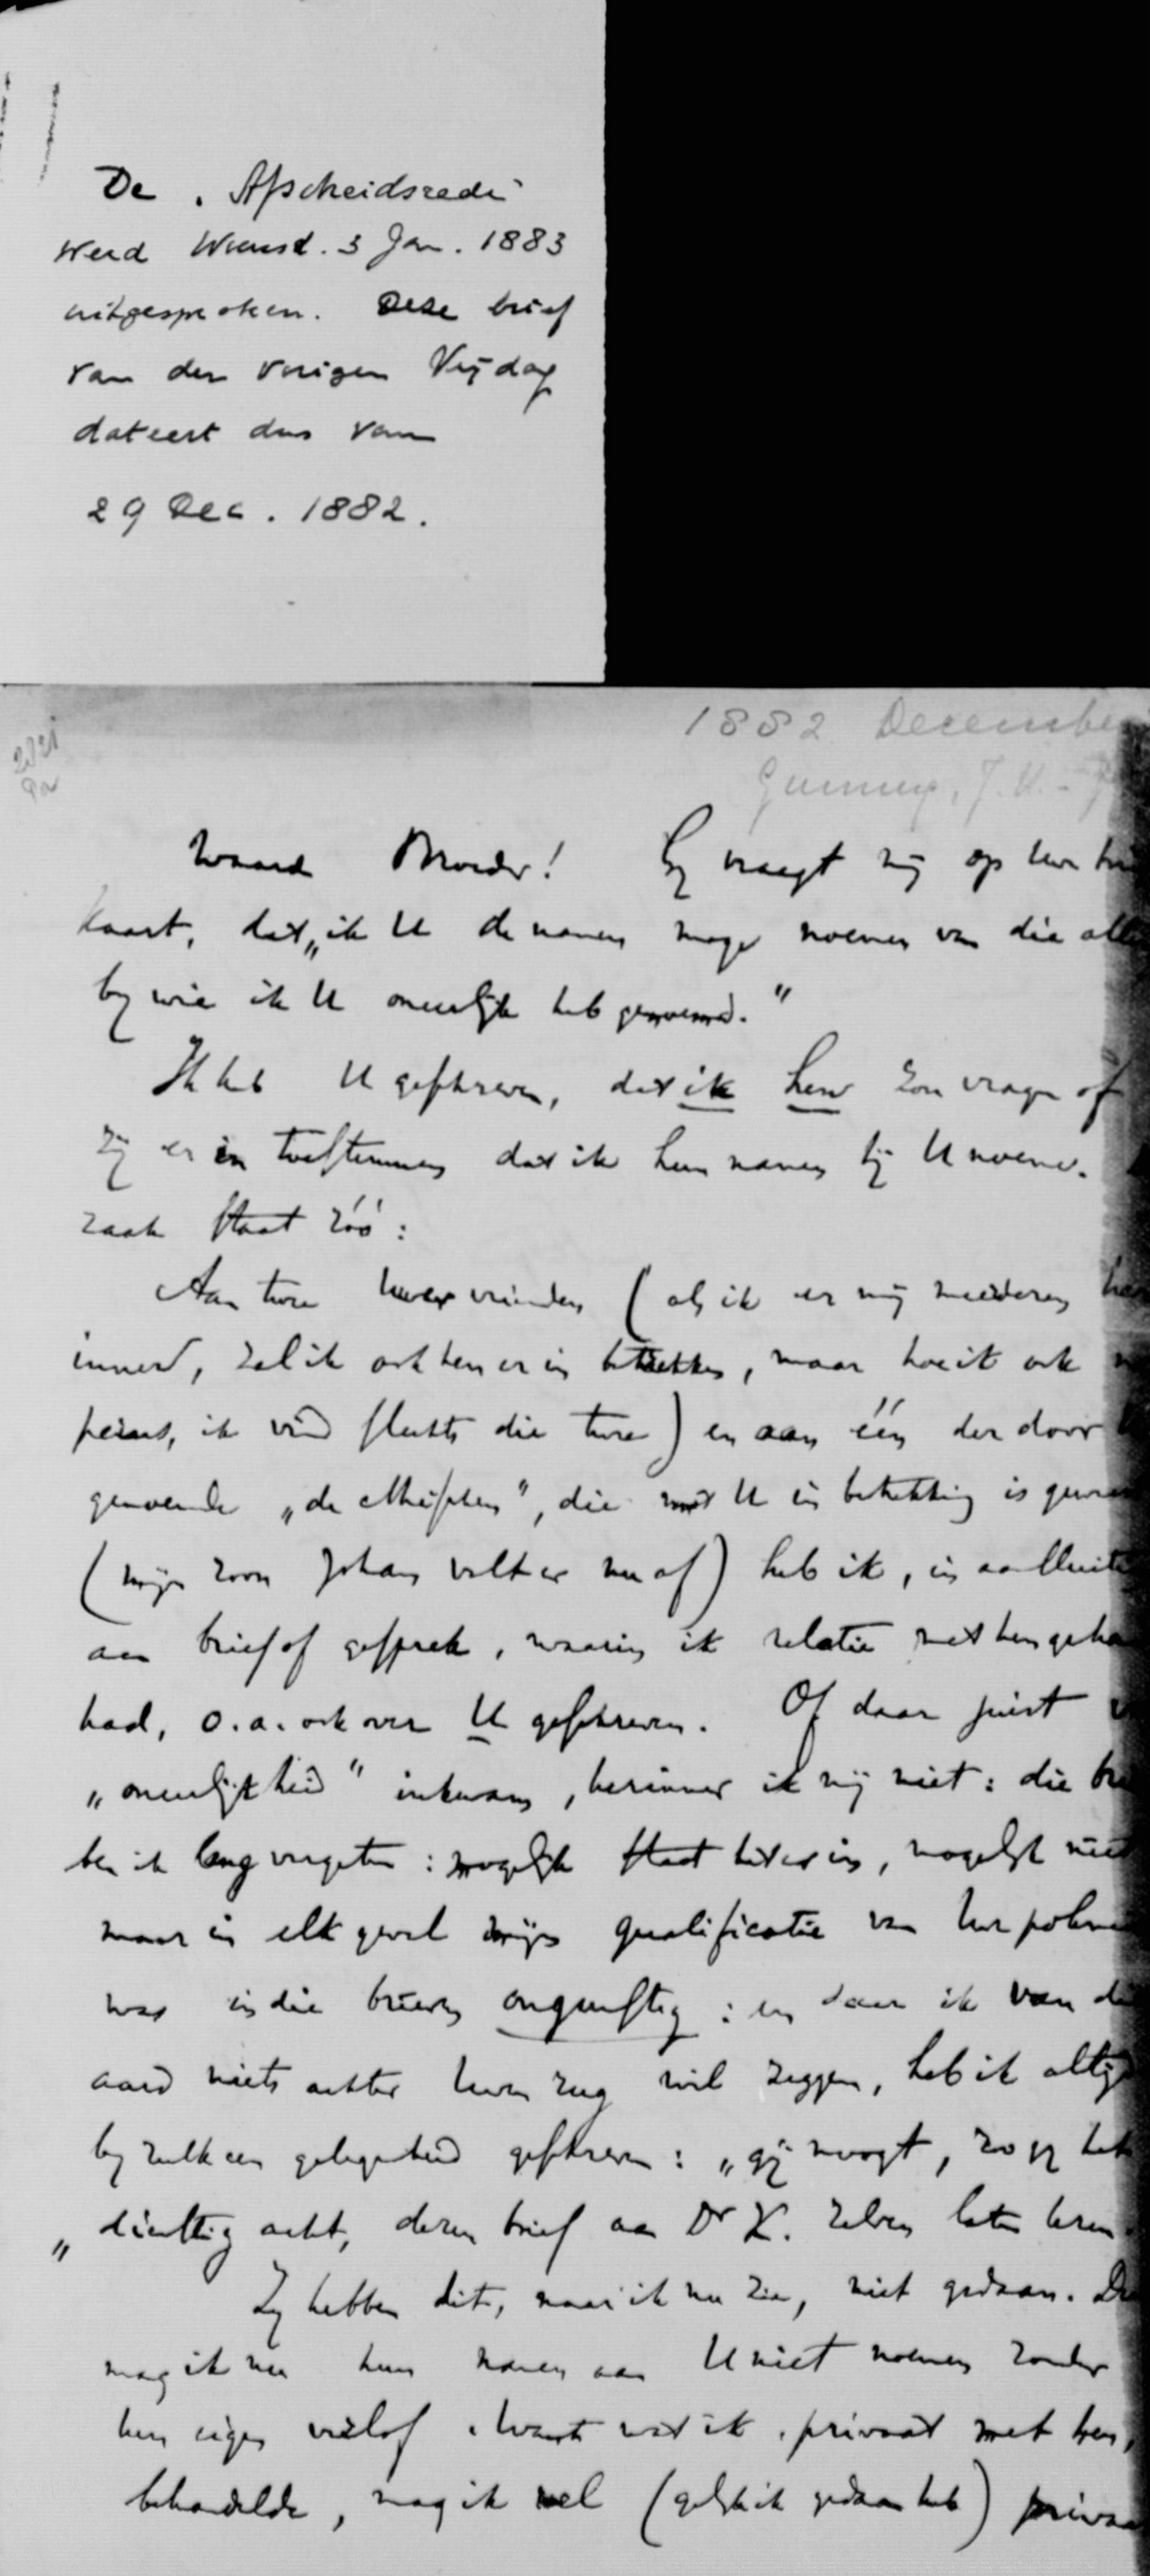 De „Afscheidsrede"
werd Woensd. 3 Jan. 1883
uitgesproken. Deze brief
van den vorigen Vrijdag
dateert dus van
29 Dec. 1882.
1882 December
Gunning, J.H.
Waarde Broeder! Gij vraagt mij op Uw
kaart, dat „ik U de namen moge noemen van die
bij wie ik U oneerlijk heb genoemd."
Ik heb U geschreven, dat ik hen zou vragen of
zij er in toestemmen dat ik hun namen bij U noeme.
zaak staat zóó:
Aan twee Uwer vrienden (als ik er mij meerderen
innerd, zal ik ook hen er in betrekken, maar hoe ik ook
peins, ik vind slechts die twee) en aan één der door
genoemde „de Ethischen", die met U in betrekking is
(mijn zoon Johan valt er nu af) heb ik, in
aan brief of gesprek, waarin ik relatie met hen
had, o.a. ook over U geschreven. Of daar juist
„oneerlijkheid" inkwam, herinner ik mij niet: die
ben ik lang vergeten: mogelijk staat het er in, mogelijk niet
maar in elk geval mijn qualificatie van Uw
was in die brieven ongunstig: en daar ik van
aard niets achter Uwen rug wil zeggen, heb ik altijd
bij zulk een gelegenheid geschreven: „gij moogt, zo gij het
„dienstig acht, dezen brief aan Dr K. zelven laten lezen.
Zij hebben dit, naar ik nu zie, niet gedaan.
mag ik nu hun namen aan U niet noemen zonder
hun eigen verlof. Want wat ik privaat met hen,
behandelde, mag ik wel (gelijk ik gedaan heb)